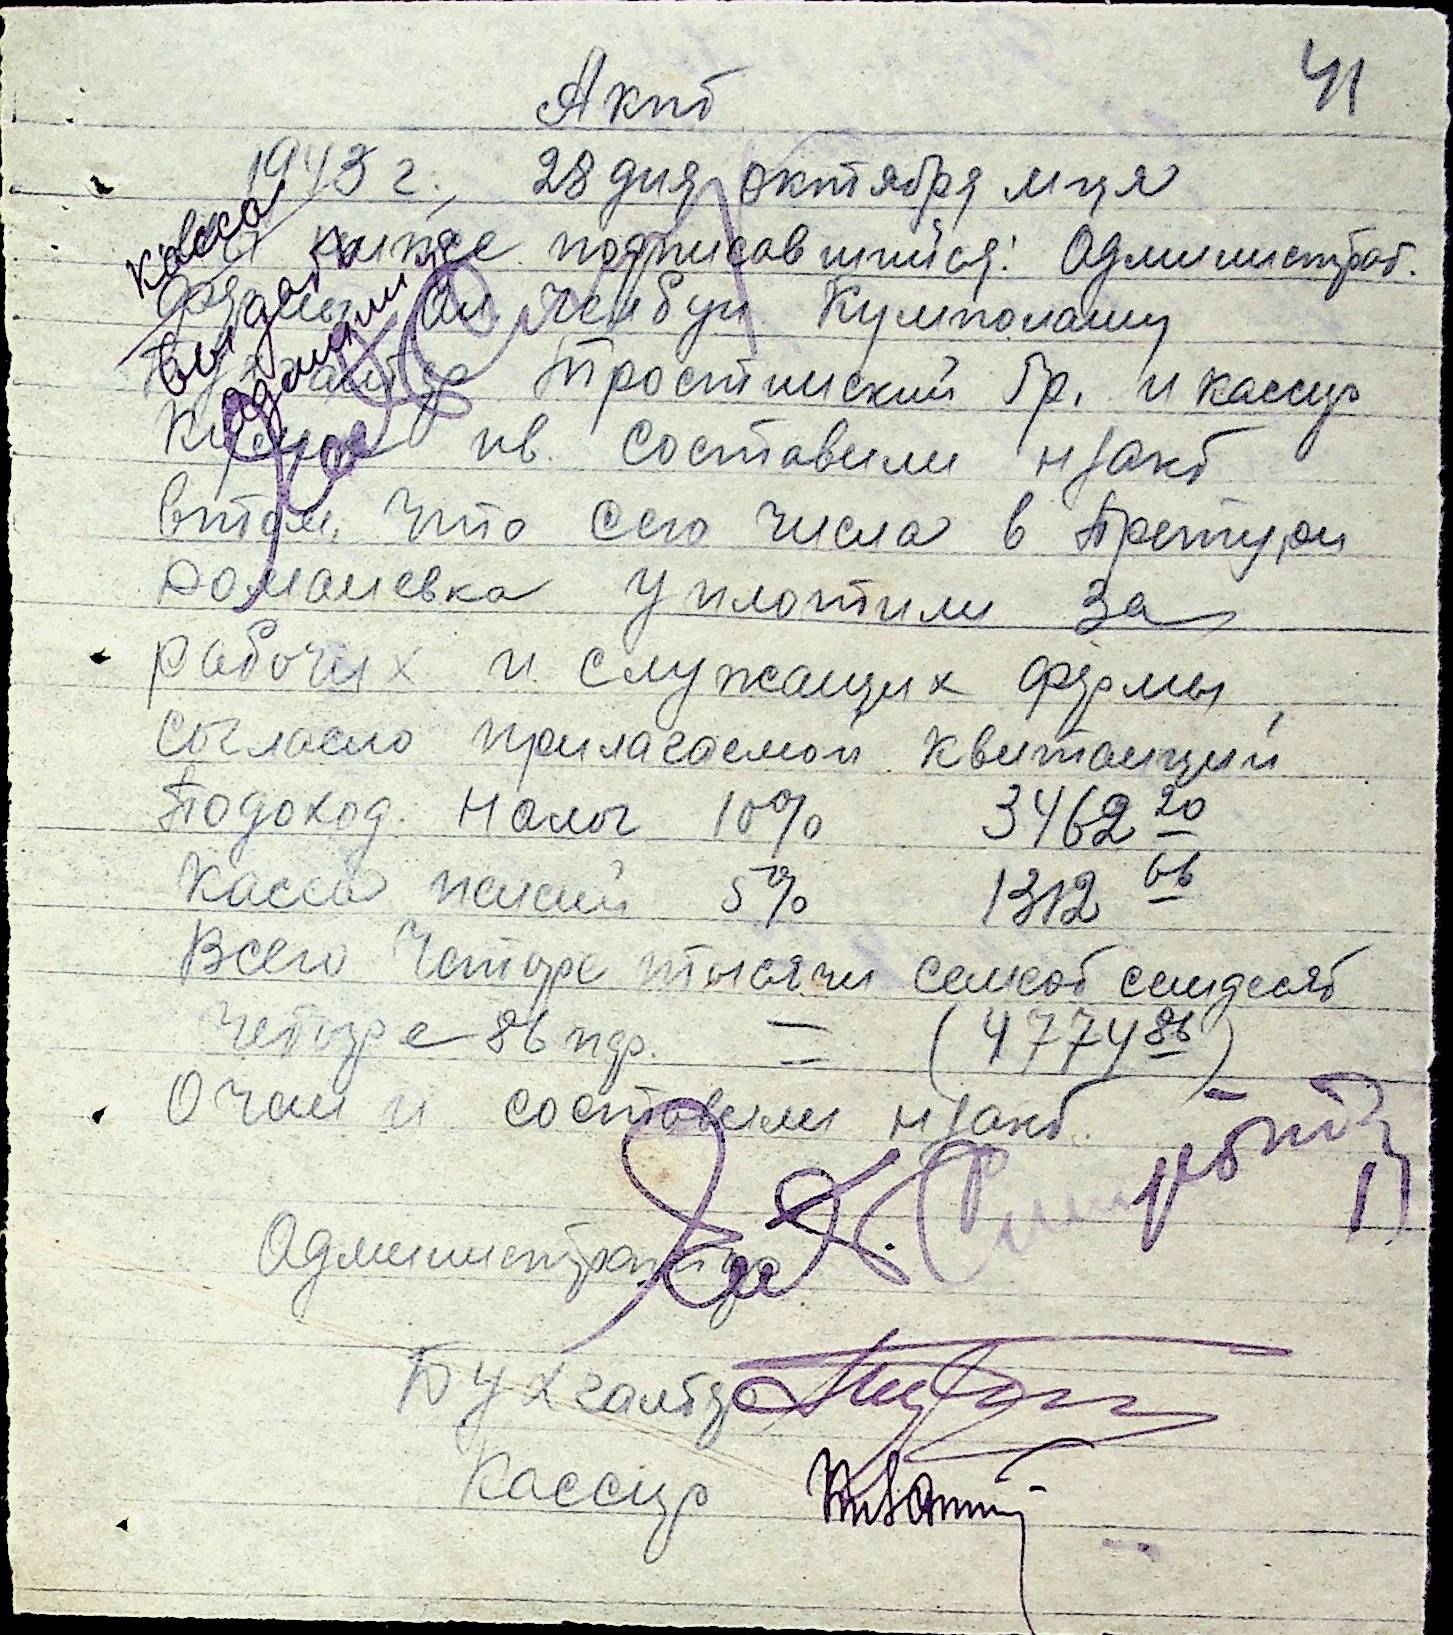 41
Актъ
1943 г. 28 дня октября м-ця
ниже подписавшийся: Администрат.
фермы
Касса
Выдать
Простинский Гр. и кассир
ив. составили н/актъ
втом, что сего числа в Претури
Доманевка уплотили за
рабочих и служащих фермы,
согласно прилагаемой квитанций
Подоход. налог 10% 3462 20
Касса пенсий 5% 1312 66
Всего Четыре тысячи семсот семдесят
четыре 86 пф. = (4774 86)
О чем и составили н/актъ.
Администратор
Бухгалтер
Кассир